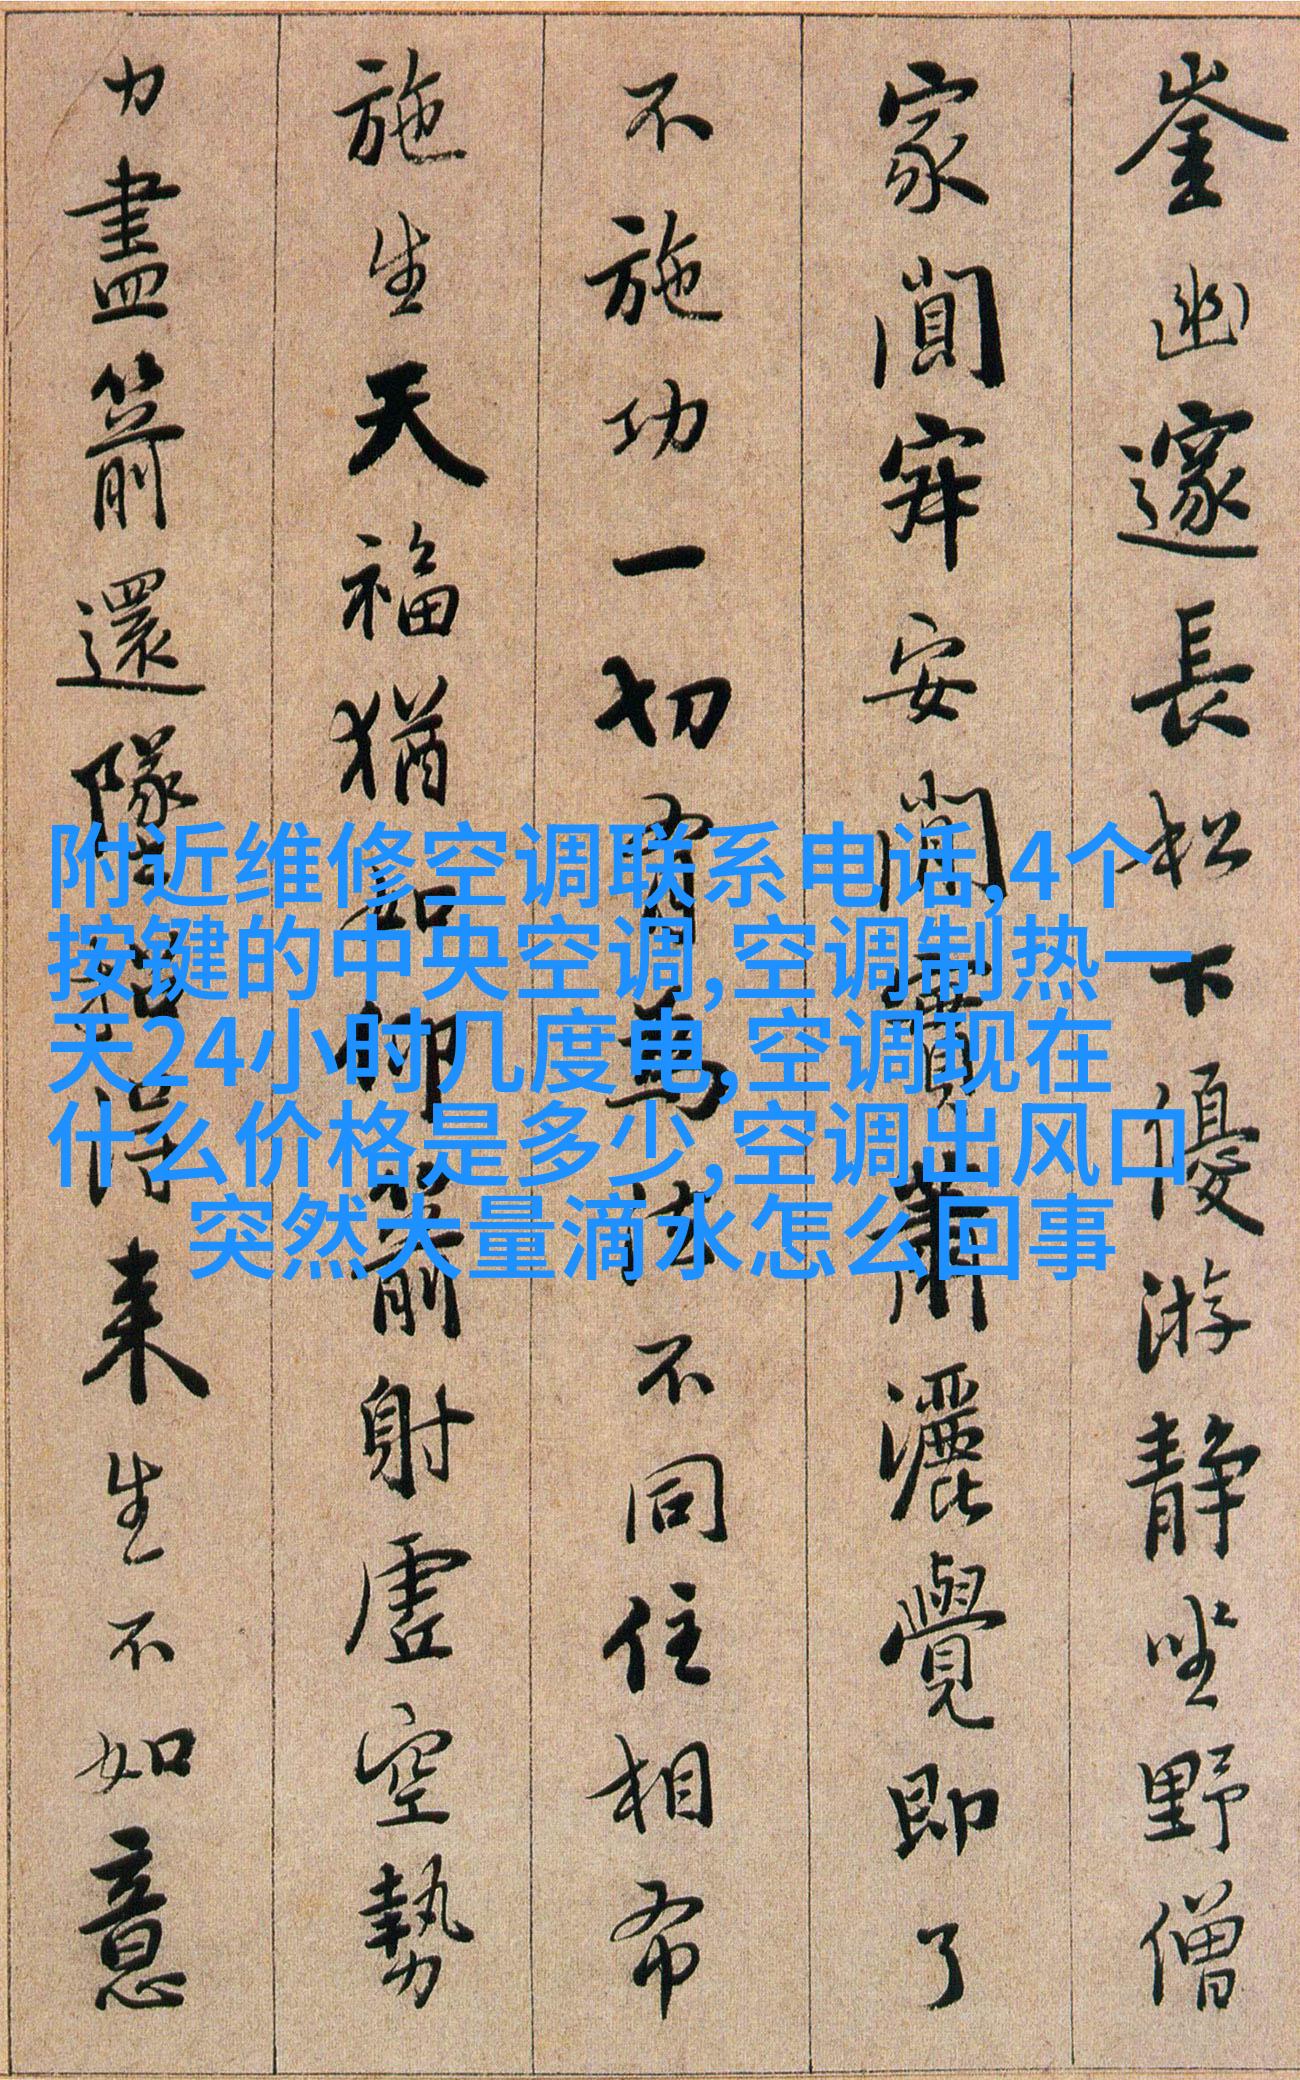 崟幽邃長松下優游静坐野僧
家闃寂安閒實蕭灑覺即了
不施功一切有為法不同住相布
施生天福猶如仰箭射虛空勢
力盡箭還墜招得来生不如意
附近维修空调联系电话,4个
按键的中央空调,空调制热一
天24小时几度电,空调现在
什么价格是多少,空调出风口
突然大量滴水怎么回事